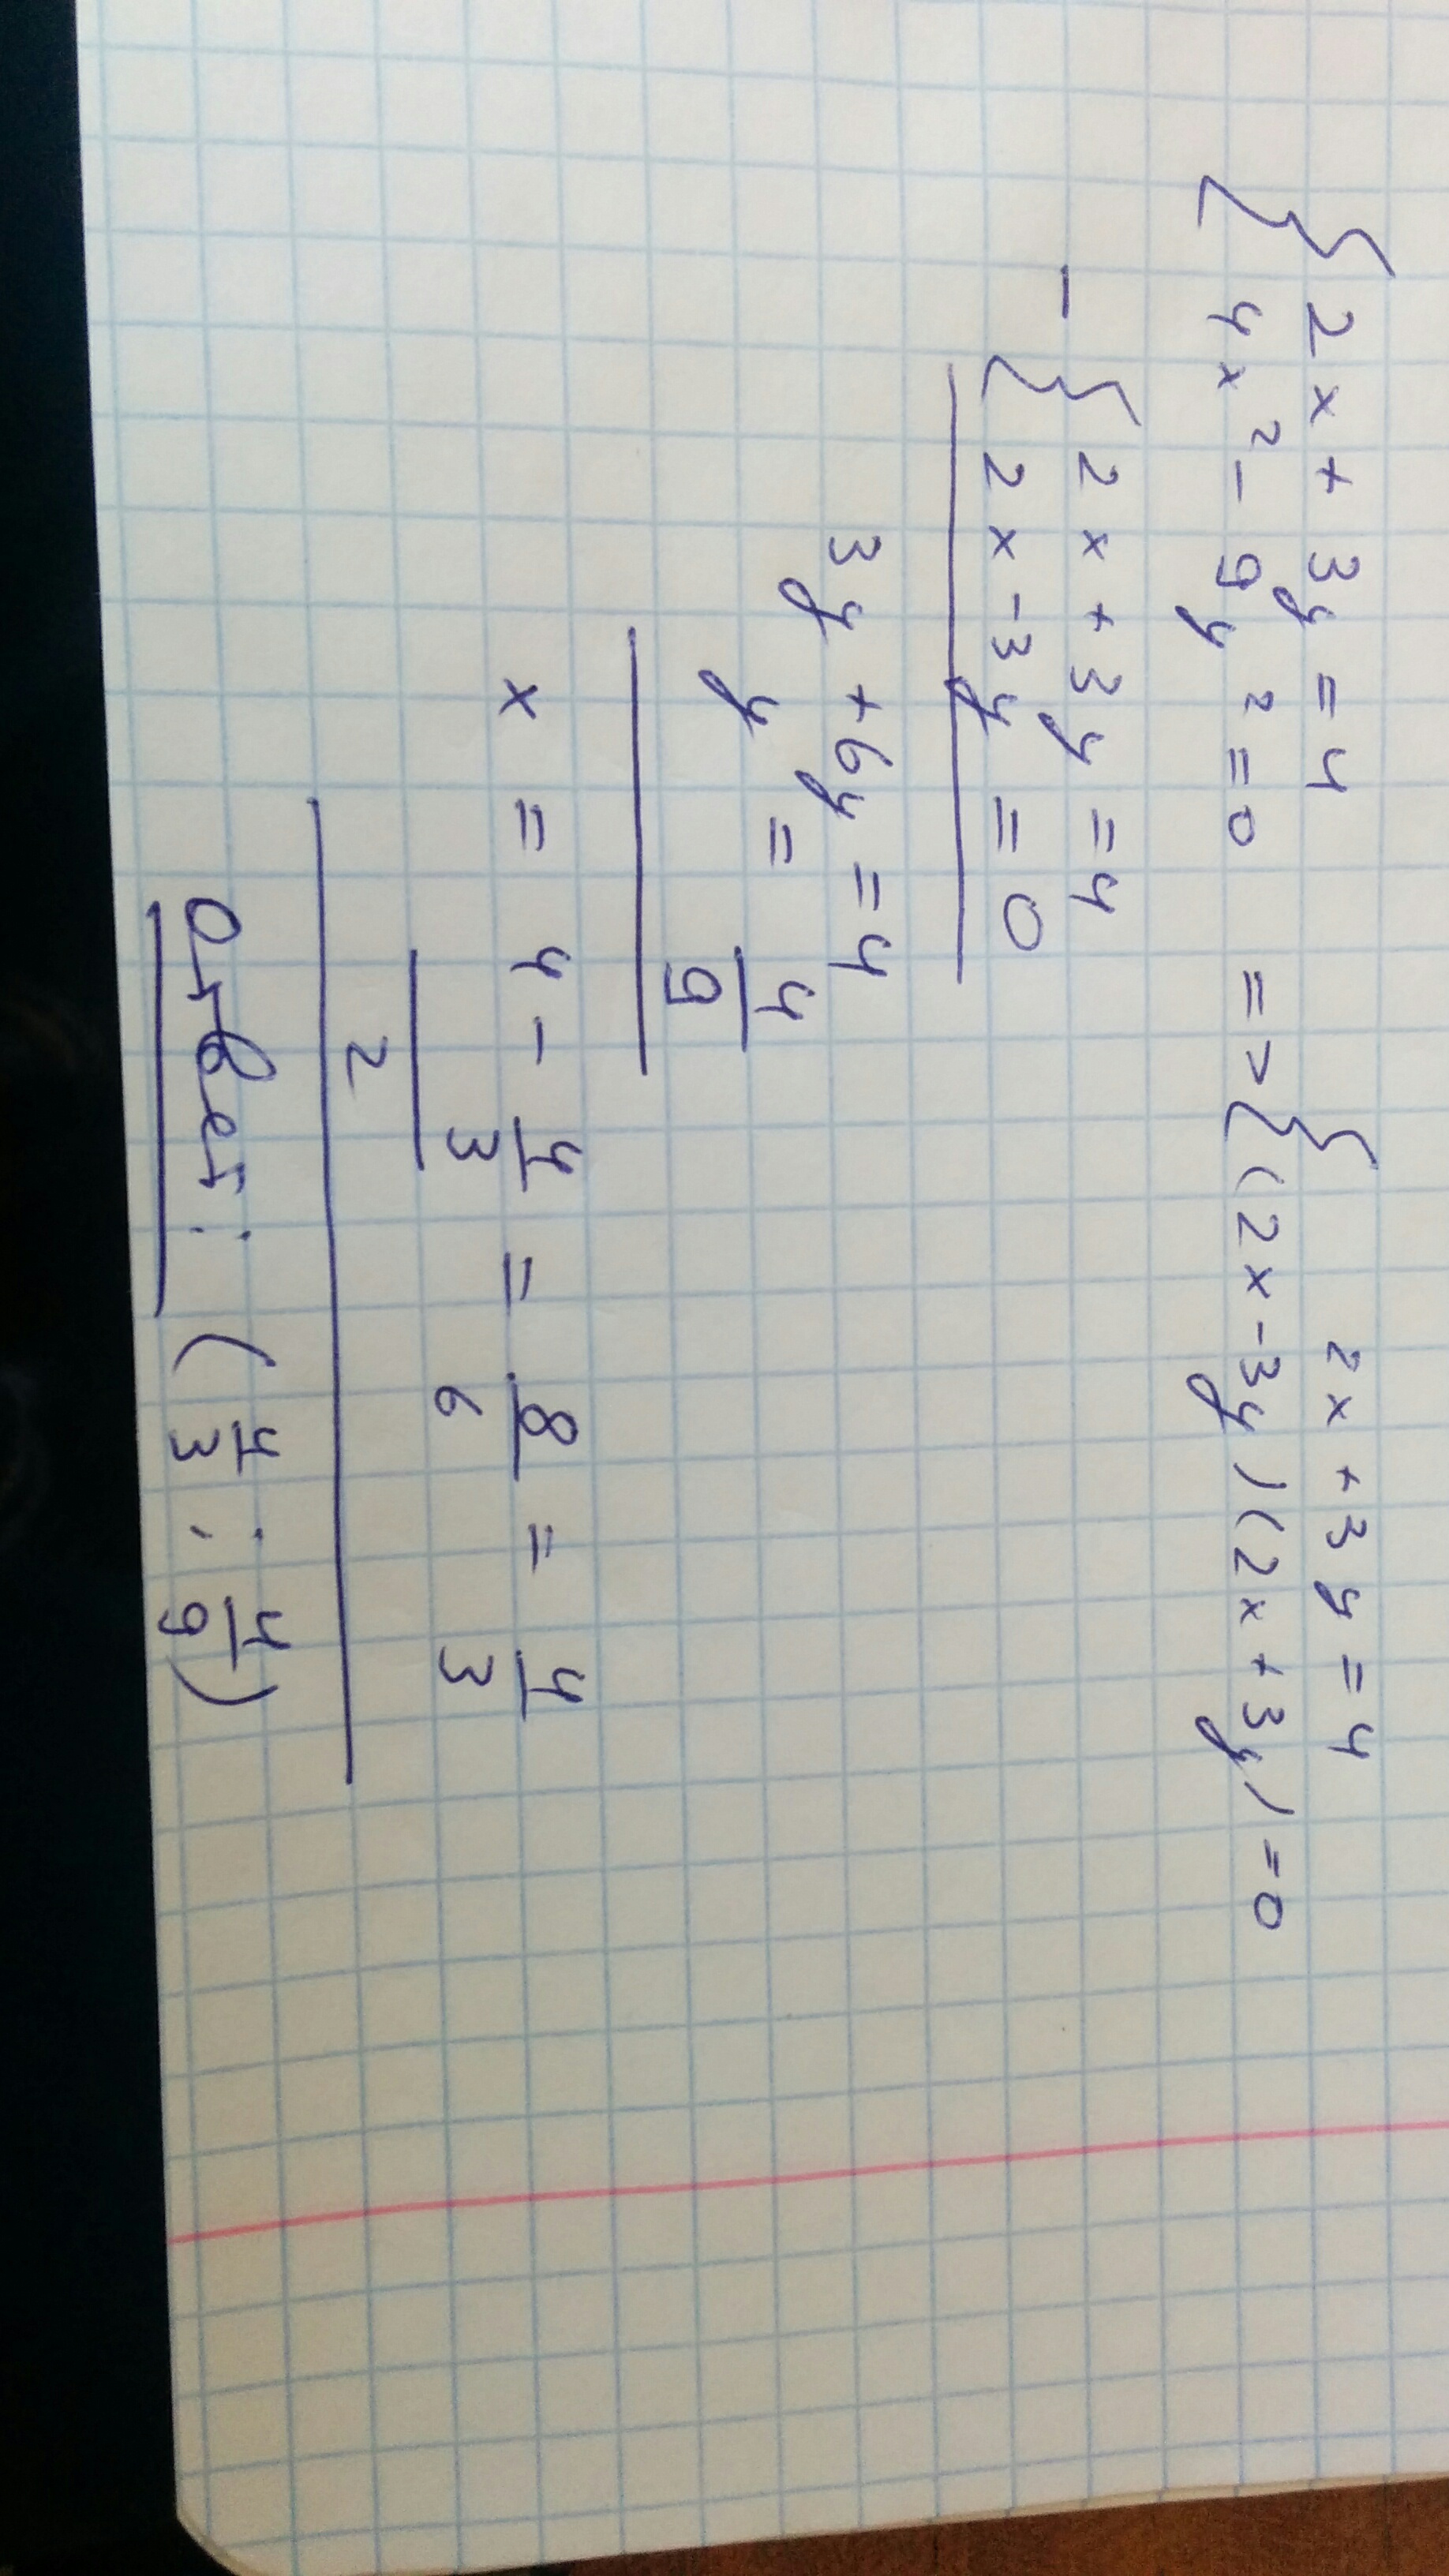 { 2x + 3y = 4
4x² - 9y² = 0 => { 2x + 3y = 4
(2x - 3y)(2x + 3y) = 0
- { 2x + 3y = 4
2x - 3y = 0
3y + 6y = 4
y = 4/9
x = (4 - 4/3)/2 = 8/6 = 4/3
Ответ: (4/3 ; 4/9)